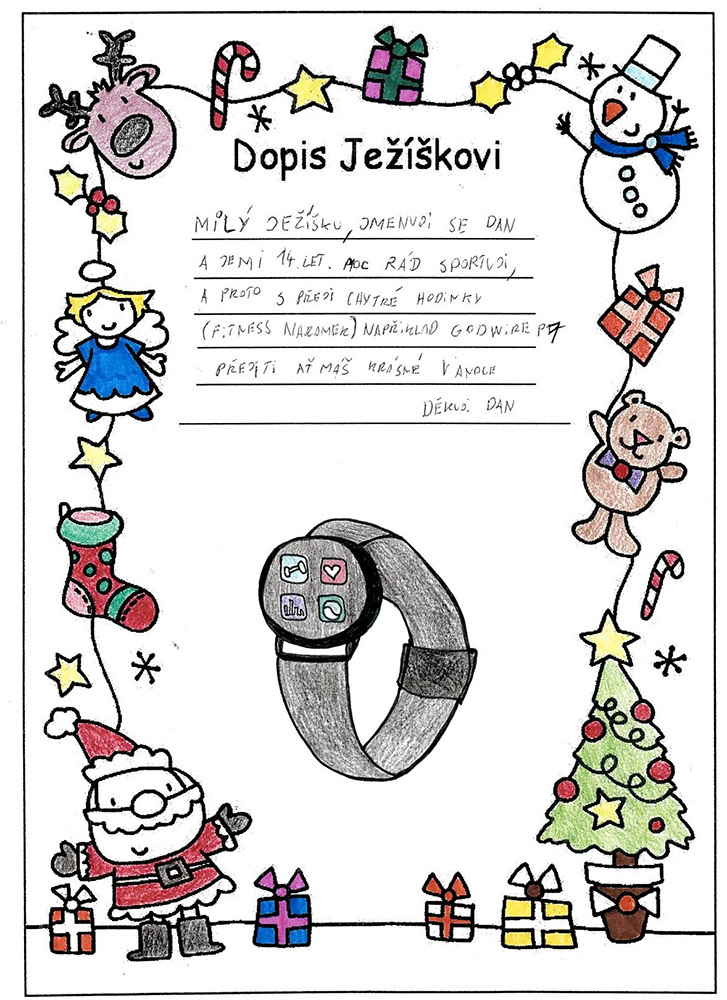 Dopis Ježíškovi
MILÝ JEŽÍŠKU, JMENUJI SE DAN
A JEMI 14.LET. MOC RÁD SPORTUJI,
A PROTO S PŘEJI CHYTRÉ HODINKY
(FITNESS NARAMEK) NAPŘIKLAD GODWIRE P7
PŘEJI TI AŤ MÁŠ KRÁSNÉ VANOCE
DĚKUJI DAN